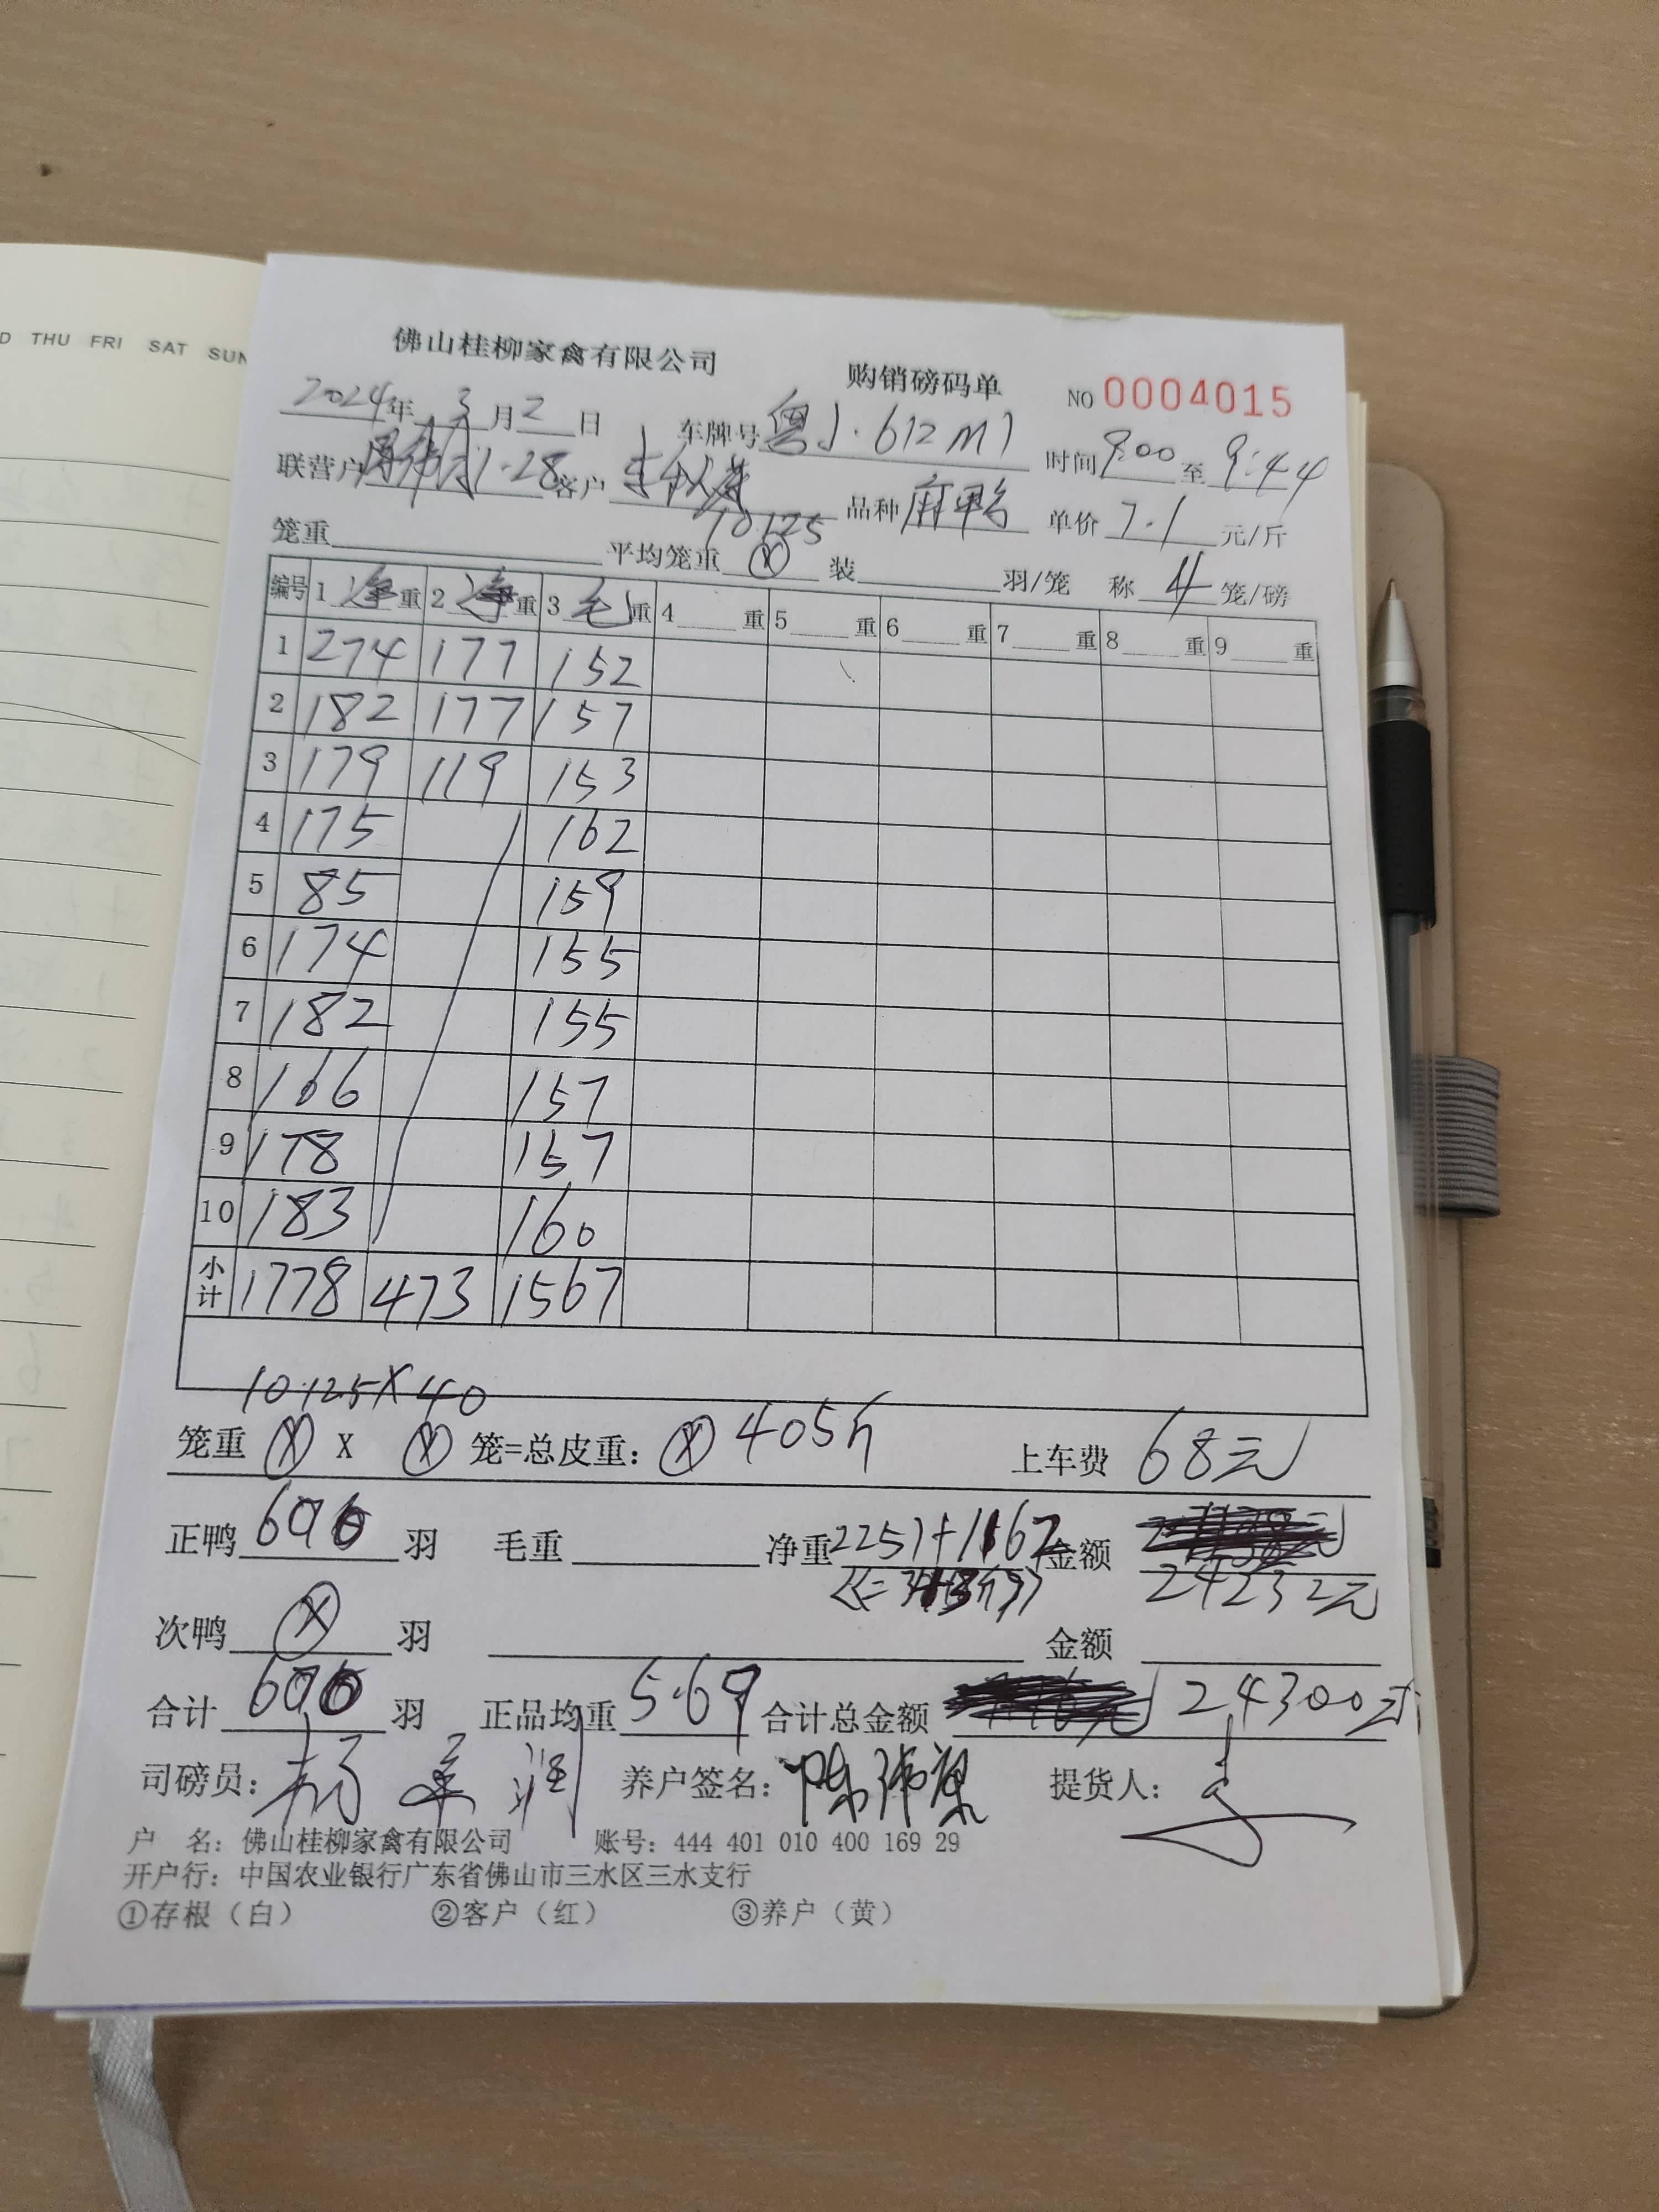 D THU FRI SAT SUN
佛山桂柳家禽有限公司 购销磅码单 NO 0004015
2024年 3月2日 车牌号 粤J·612M7 时间 9:00 至 9:44
联营户 1-28 客户 品种 麻鸭 单价 7.1 元/斤
10.125
笼重 平均笼重 ⓧ 装 羽/笼 称 4 笼/磅
编号 1 净重 2 净重 3 毛重 4 重 5 重 6 重 7 重 8 重 9 重
1 274 177 152
2 182 177 157
3 179 119 153
4 175 162
5 85 159
6 174 155
7 182 155
8 166 157
9 178 157
10 183 160
小计 1778 473 1567
10.125X40
笼重 ⓧ X ⓧ 笼=总皮重: ⓧ 405斤 上车费 68元
正鸭 600 羽 毛重 净重 2251+1162 金额
24232元
次鸭 ⓧ 羽 金额
合计 600 羽 正品均重 5.69 合计总金额 24300元
司磅员: 养户签名: 提货人:
户 名: 佛山桂柳家禽有限公司 账号: 444 401 010 400 169 29
开户行: 中国农业银行广东省佛山市三水区三水支行
①存根（白） ②客户（红） ③养户（黄）